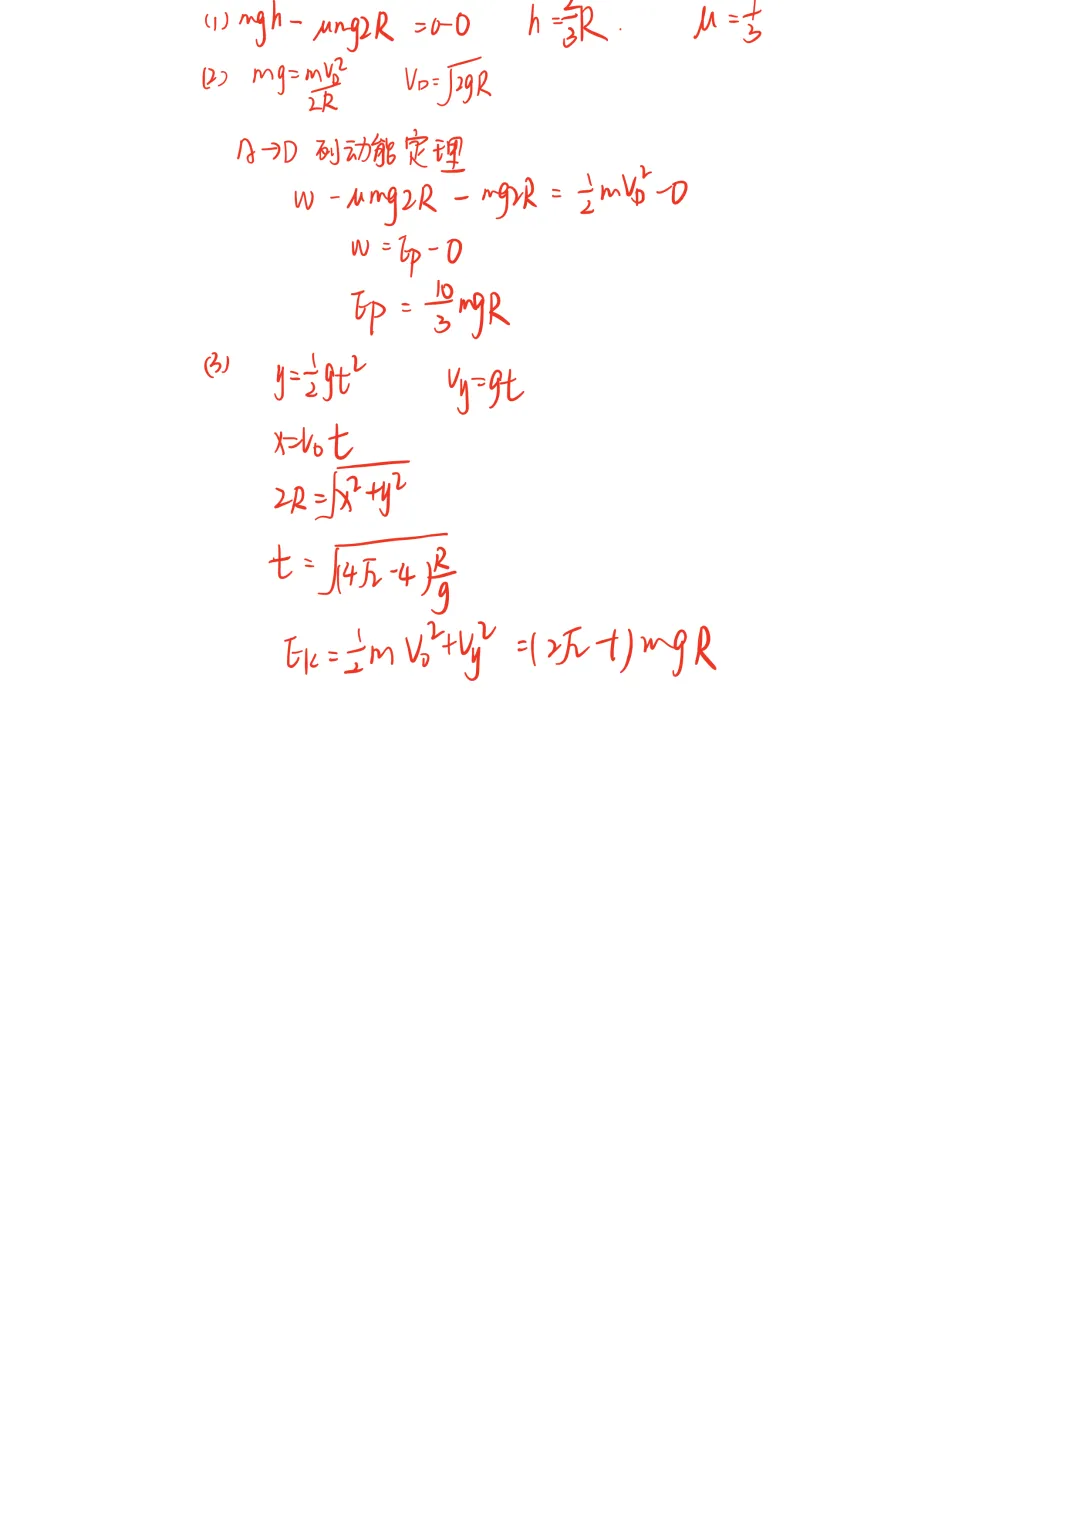 (1) mgh - μmg2R = 0-0 h = 2/3 R. μ = 1/3
(2) mg = mV_D²/2R V_D = √2gR
A→D 列动能定理
W - μmg2R - mg2R = 1/2 mV_D² - 0
W = Ep - 0
Ep = 10/3 mgR
(3) y = 1/2 gt² Vy = gt
x = V_D t
2R = √x²+y²
t = √(4√2 - 4) R/g
Ek = 1/2 m V_D² + Vy² = (2√2 - 1) mgR